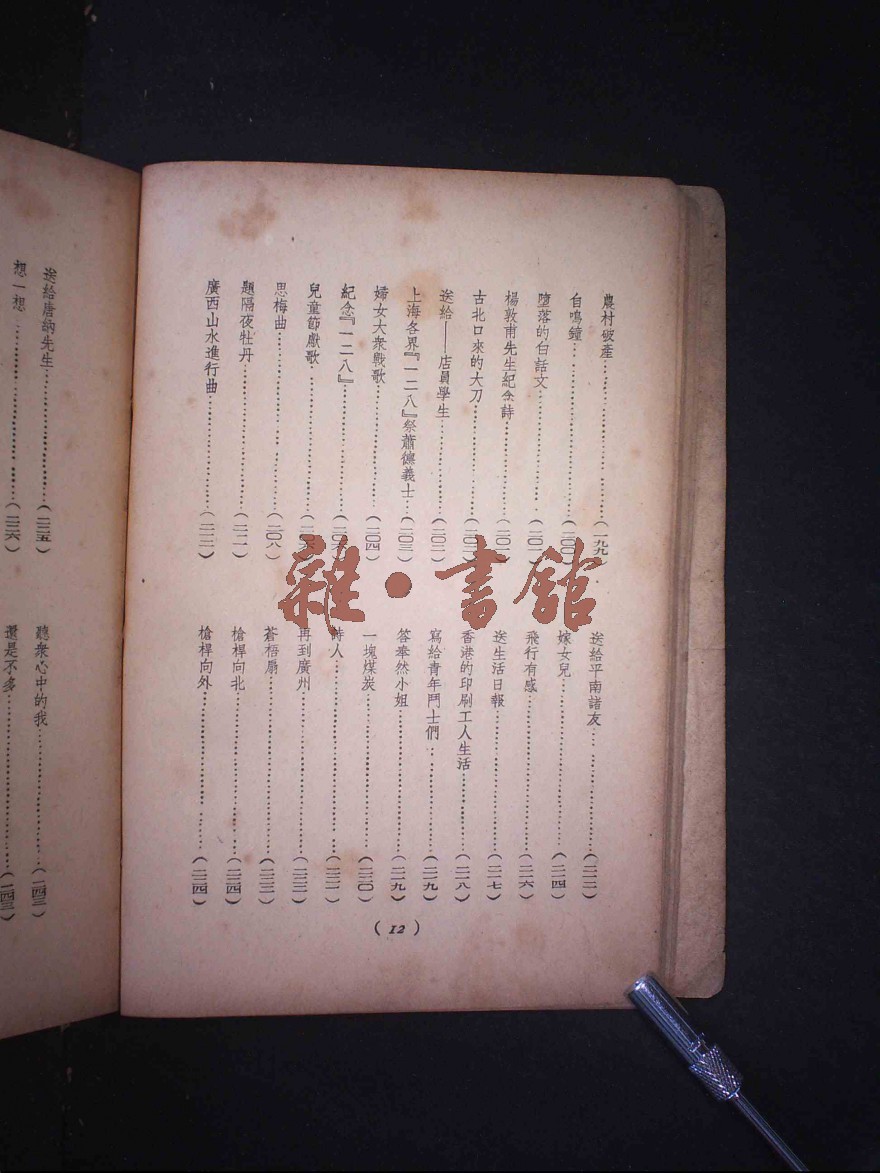 農村破產……(一九九)
自鳴鐘……(二〇〇)
墮落的白話文……(二〇一)
楊敦甫先生紀念詩……(二〇一)
古北口來的大刀……(二〇二)
送給——店員學生……(二〇二)
上海各界『一二八』祭蕭德義士…(二〇三)
婦女大衆戰歌……(二〇四)
紀念『一二八』……(二〇六)
兒童節獻歌……(二〇六)
思梅曲……(二〇八)
題隔夜牡丹……(二一一)
廣西山水進行曲……(二一二)
送給平南諸友……(二一二)
嫁女兒……(二一四)
飛行有感……(二一六)
送生活日報……(二一七)
香港的印刷工人生活……(二一八)
寫給青年鬥士們……(二一九)
答奉然小姐……(二一九)
一塊煤炭……(二二〇)
詩人……
再到廣州……(二二三)
蒼梧扇……(二二三)
槍桿向北……(二二四)
槍桿向外……(二二四)
(12)
送給唐納先生……(二三五)
想一想……(二三六)
聽衆心中的我……(二四三)
還是不多……(二四三)
雜·書館